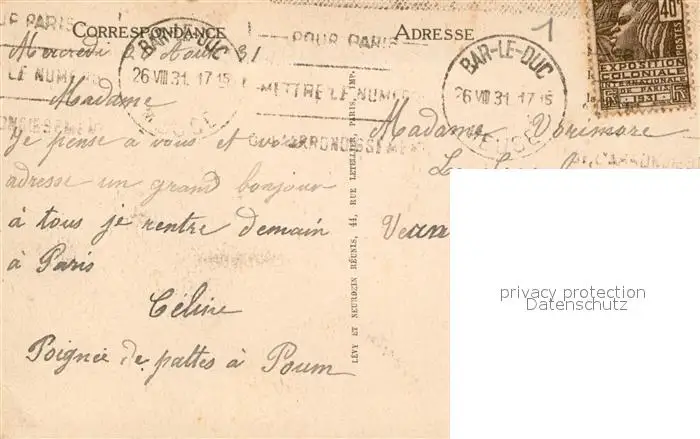 CORRESPONDANCE
ADRESSE
1
POUR PARIS
LE NUMÉRO
BAR-LE-DUC
26 VIII 31. 17 15
MEUSE
POUR PARIS
METTRE LE NUMÉRO
D'ARRONDISSEMENT
BAR-LE-DUC
26 VIII 31. 17 15
MEUSE
40c
EXPOSITION
COLONIALE
INTERNATIONALE
DE PARIS
1931
Mercredi Août 31
Madame
Je pense à vous et vous
adresse un grand bonjour
à tous je rentre demain
à Paris
Céline
Poignée de pattes à Poum
LÉVY ET NEURDEIN RÉUNIS, 44, RUE LETELLIER, PARIS, IMP.
Madame
privacy protection
Datenschutz